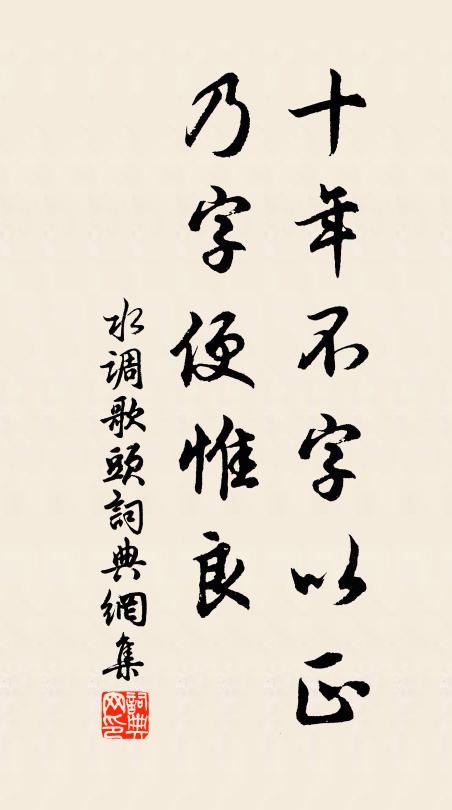 十年不字以正
乃字便惟良
水调歌頭詞典網集
詞典网印